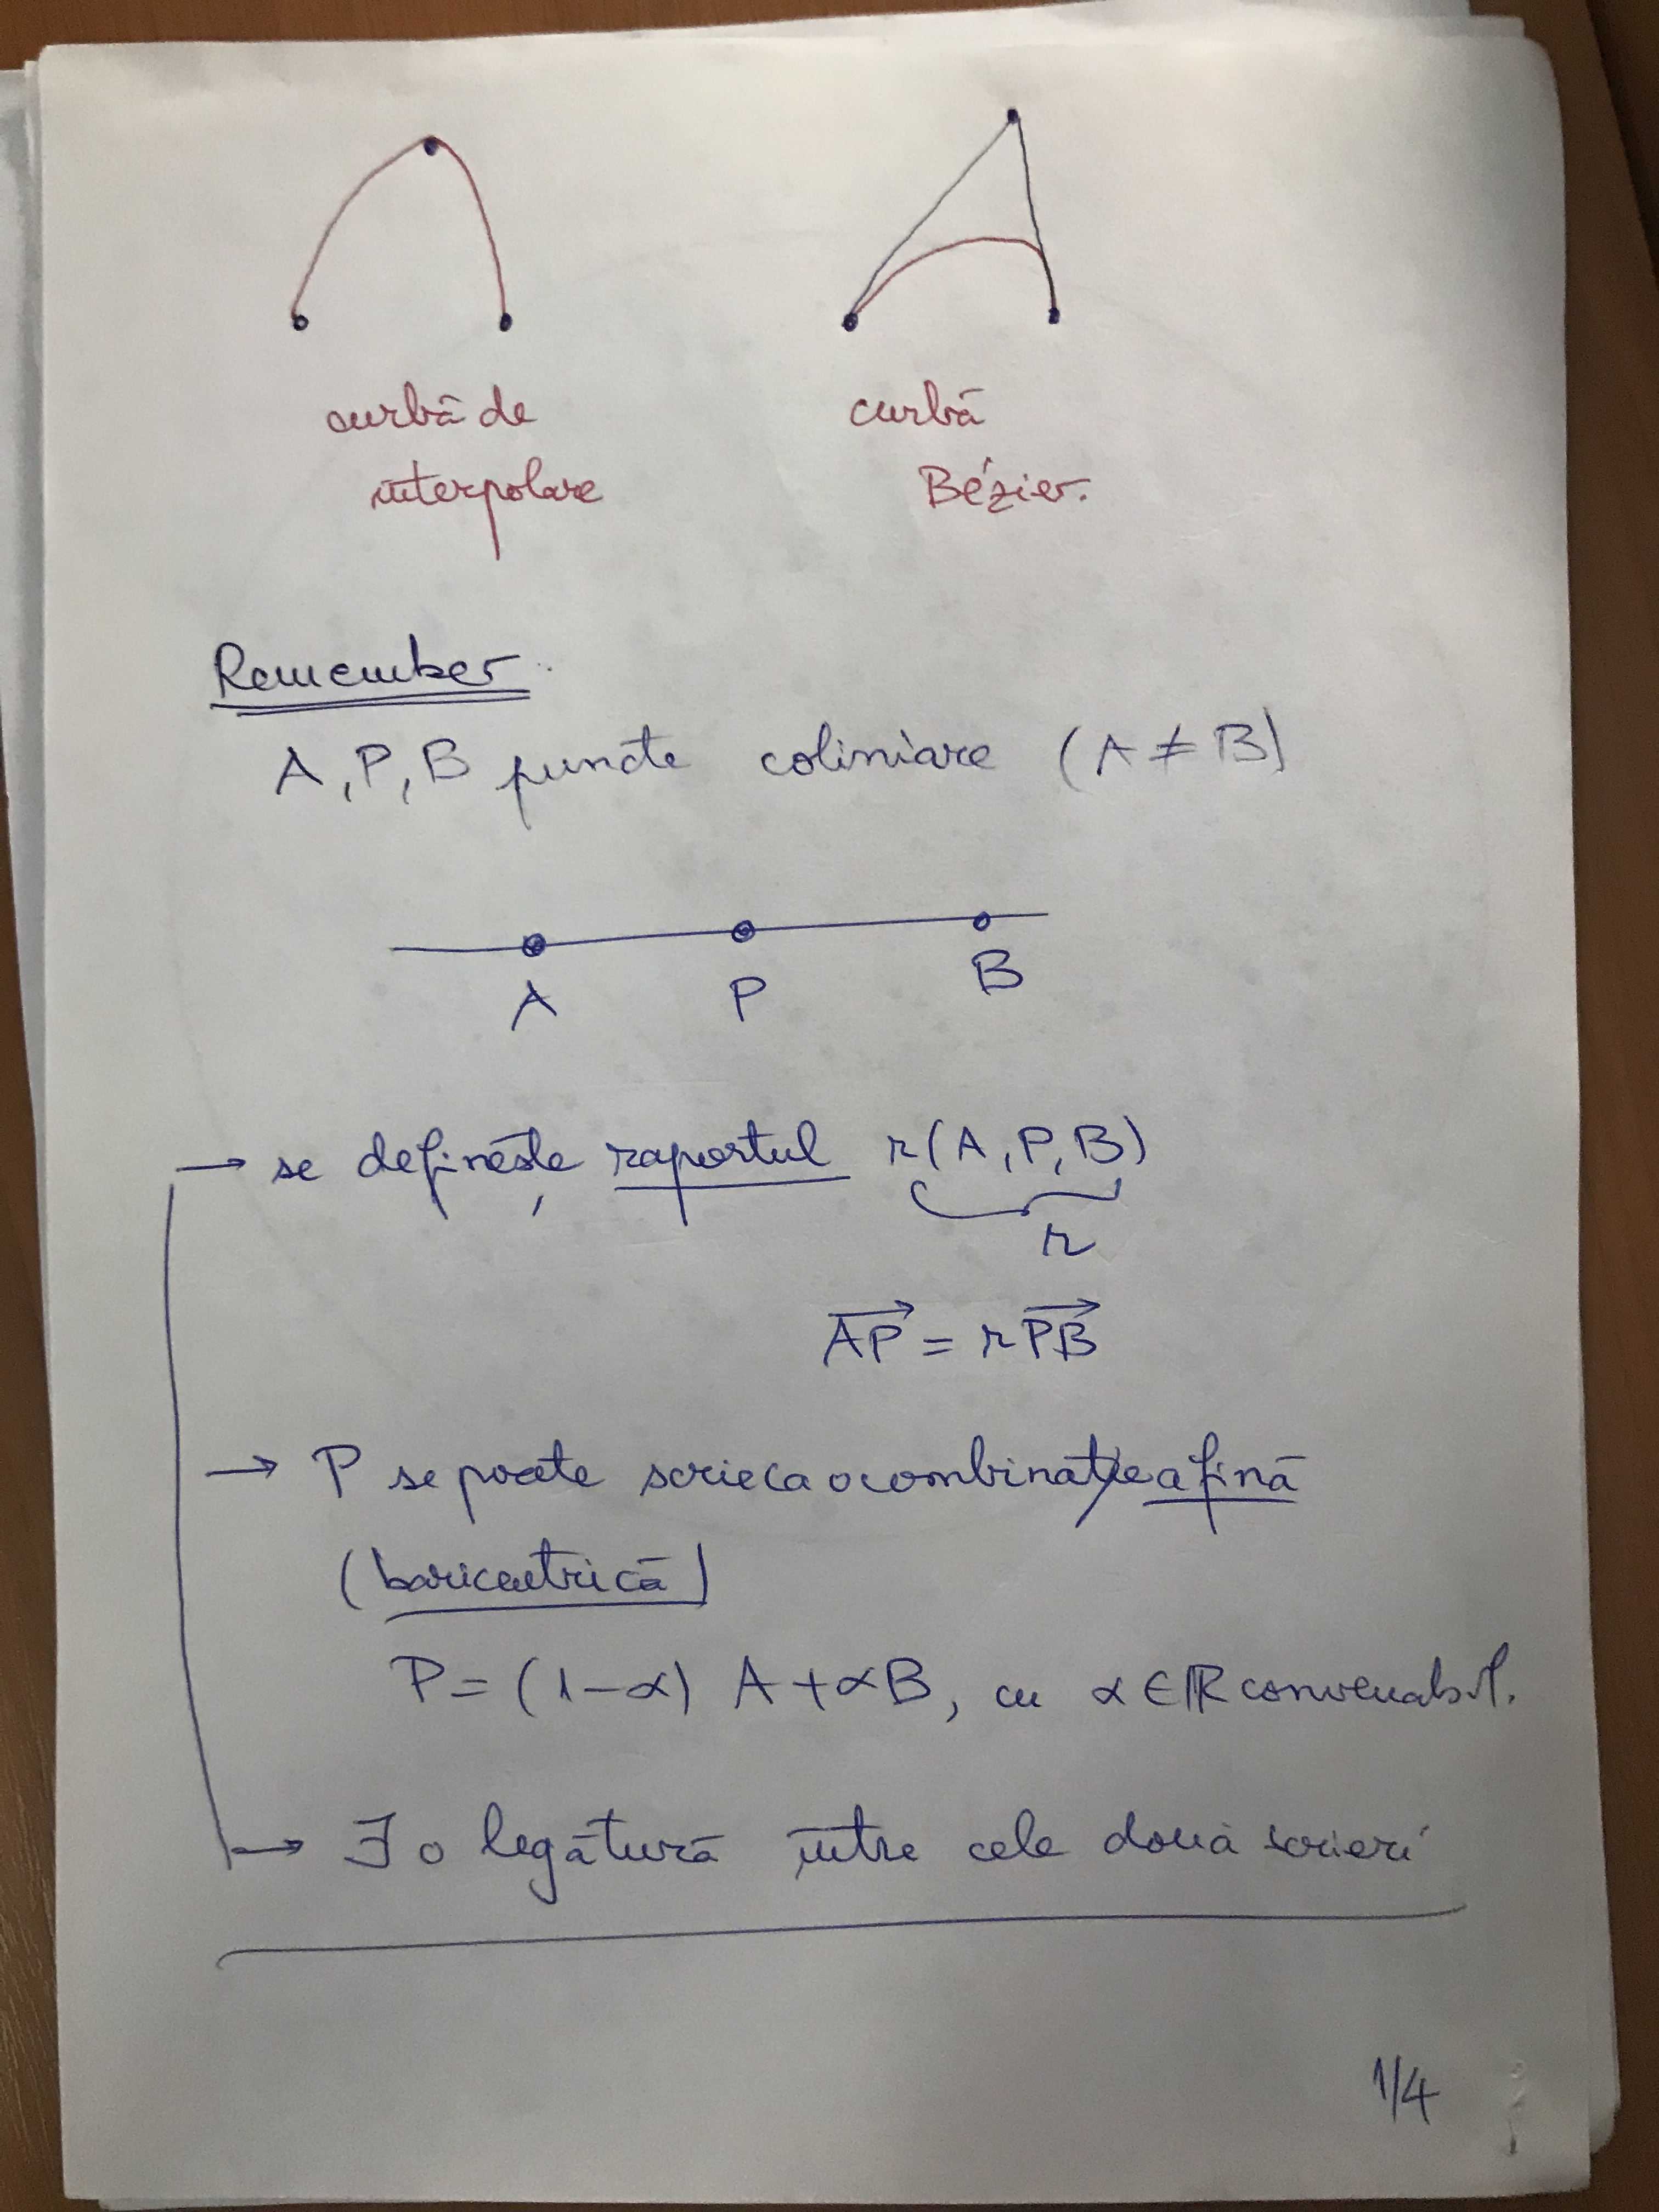 curbă de
interpolare
curbă
Bézier.
Remember:
A, P, B puncte coliniare (A ≠ B)
A P B
→ se definește raportul r(A, P, B)
r
AP⃗ = r PB⃗
→ P se poate scrie ca o combinație afină
(baricentrică)
P = (1-α) A + αB, cu α ∈ ℝ convenabil.
→ ∃ o legătură între cele două scrieri
1/4